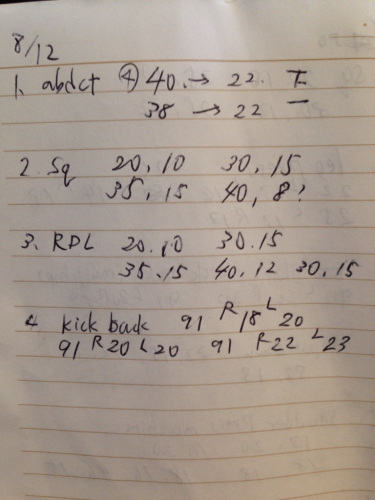 8/12
1. abdct ④ 40. → 22. T
38 → 22 —
2. Sq 20, 10 30, 15
35, 15 40, 8?
3. RDL 20.10 30.15
35.15 40.12 30.15
4. kick back 91 R18 L20
91 R20 L20 91 R22 L23